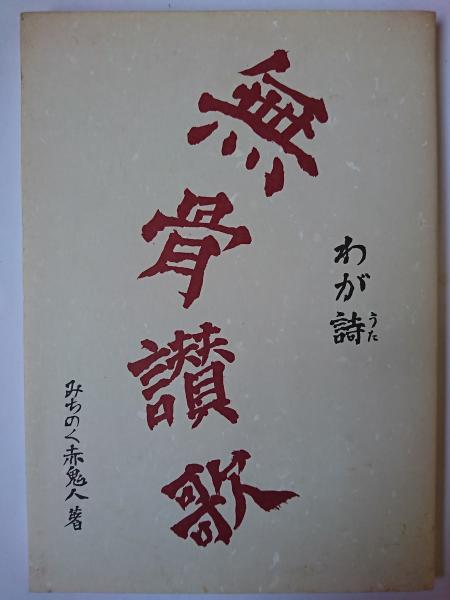 わが詩
うた
無骨讃歌
みちのく赤鬼人著